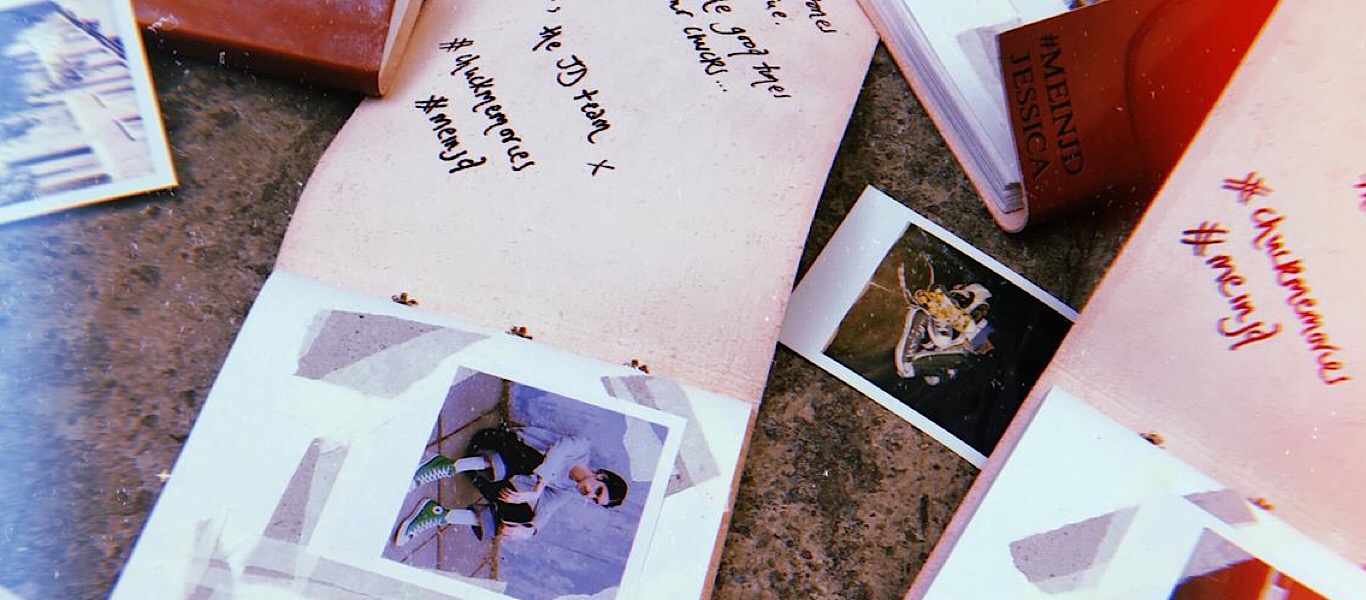 the good times
chucks...
the JD team x
#chuckmemories
#memjd
#MEINJD
JESSICA
#chuckmemories
#memjd